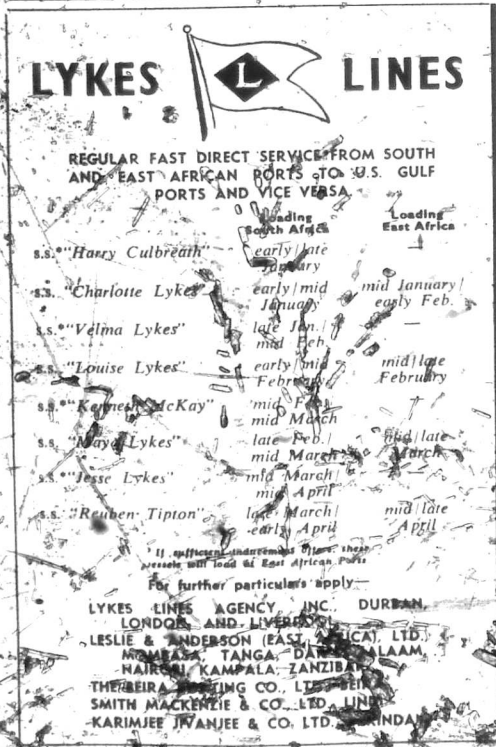 LYKES L LINES
REGULAR FAST DIRECT SERVICE FROM SOUTH
AND EAST AFRICAN PORTS TO U.S. GULF
PORTS AND VICE VERSA
Loading Loading
South Africa East Africa
s.s.*"Harry Culbreath" early/late —
January
s.s. "Charlotte Lykes" early/mid mid January/
January early Feb.
s.s.*"Velma Lykes" late Jan./ —
mid Feb.
s.s. "Louise Lykes" early/mid mid/late
February February
s.s.*"Kenneth McKay" mid Feb./
mid March
s.s. "Maya Lykes" late Feb./ mid/late
mid March March
s.s.*"Jesse Lykes" mid March/ —
mid April
s.s. "Reuben Tipton" late March/ mid/late
early April April
* If sufficient inducement offers, these
vessels will load at East African Ports
For further particulars apply—
LYKES LINES AGENCY, INC., DURBAN,
LONDON, AND LIVERPOOL.
LESLIE & ANDERSON (EAST AFRICA), LTD.,
MOMBASA, TANGA, DAR ES SALAAM,
NAIROBI, KAMPALA, ZANZIBAR.
THE BEIRA BOATING CO., LTD., BEIRA.
SMITH MACKENZIE & CO., LTD., LINDI.
KARIMJEE JIVANJEE & CO. LTD.,